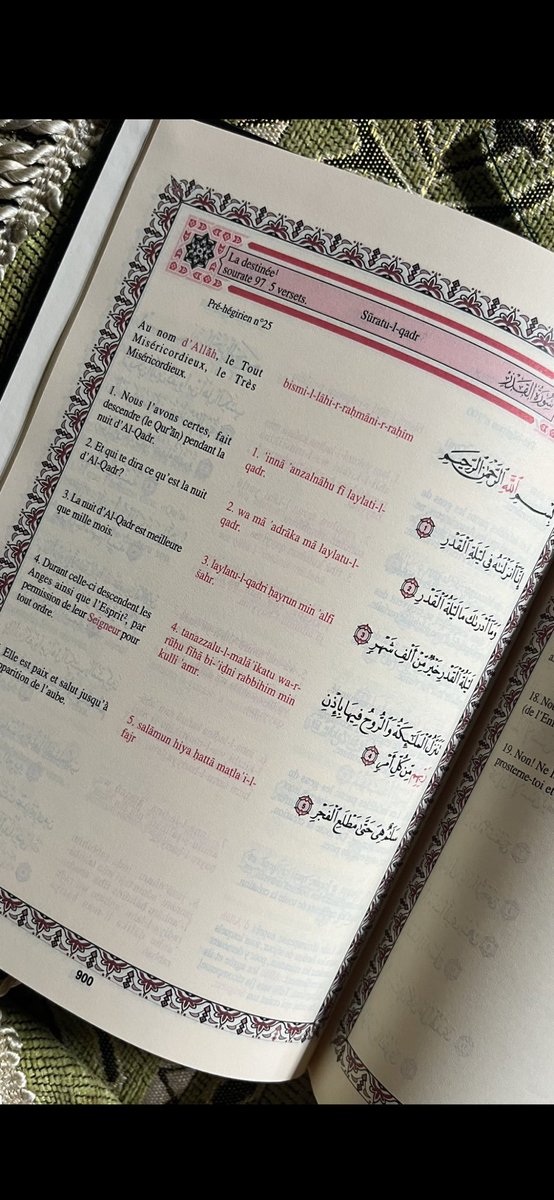 La destinée!
sourate 97 5 versets.
Sūratu-l-qadr
سورة القدر
Pré-hégirien n°25
Au nom d'Allâh, le Tout
Miséricordieux, le Très
Miséricordieux.
1. Nous l'avons certes, fait
descendre (le Qur'ân) pendant la
nuit d'Al-Qadr.
2. Et qui te dira ce qu'est la nuit
d'Al-Qadr?
3. La nuit d'Al-Qadr est meilleure
que mille mois.
4. Durant celle-ci descendent les
Anges ainsi que l'Esprit², par
permission de leur Seigneur pour
tout ordre.
Elle est paix et salut jusqu'à
apparition de l'aube.
bismi-l-lāhi-r-raḥmāni-r-raḥim
1. 'innā 'anzalnāhu fī laylati-l-
qadr.
2. wa mā 'adrāka mā laylatu-l-
qadr.
3. laylatu-l-qadri ḫayrun min 'alfi
šahr.
4. tanazzalu-l-malā'ikatu wa-r-
rūḥu fīhā bi-'iḏni rabbihim min
kulli 'amr.
5. salāmun hiya ḥattā maṭla'i-l-
fajr
بسم الله الرحمن الرحيم
إِنَّا أَنزَلْنَٰهُ فِى لَيْلَةِ ٱلْقَدْرِ 1
وَمَآ أَدْرَىٰكَ مَا لَيْلَةُ ٱلْقَدْرِ 2
لَيْلَةُ ٱلْقَدْرِ خَيْرٌ مِّنْ أَلْفِ شَهْرٍ 3
تَنَزَّلُ ٱلْمَلَٰٓئِكَةُ وَٱلرُّوحُ فِيهَا بِإِذْنِ
رَبِّهِم مِّن كُلِّ أَمْرٍ 4
سَلَٰمٌ هِىَ حَتَّىٰ مَطْلَعِ ٱلْفَجْرِ 5
900
18. No
(de l'En
19. Non! Ne
prosterne-toi et